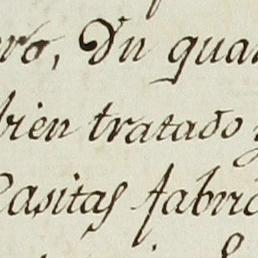 ro, Dn quan
bien tratado y
Casitas fabric